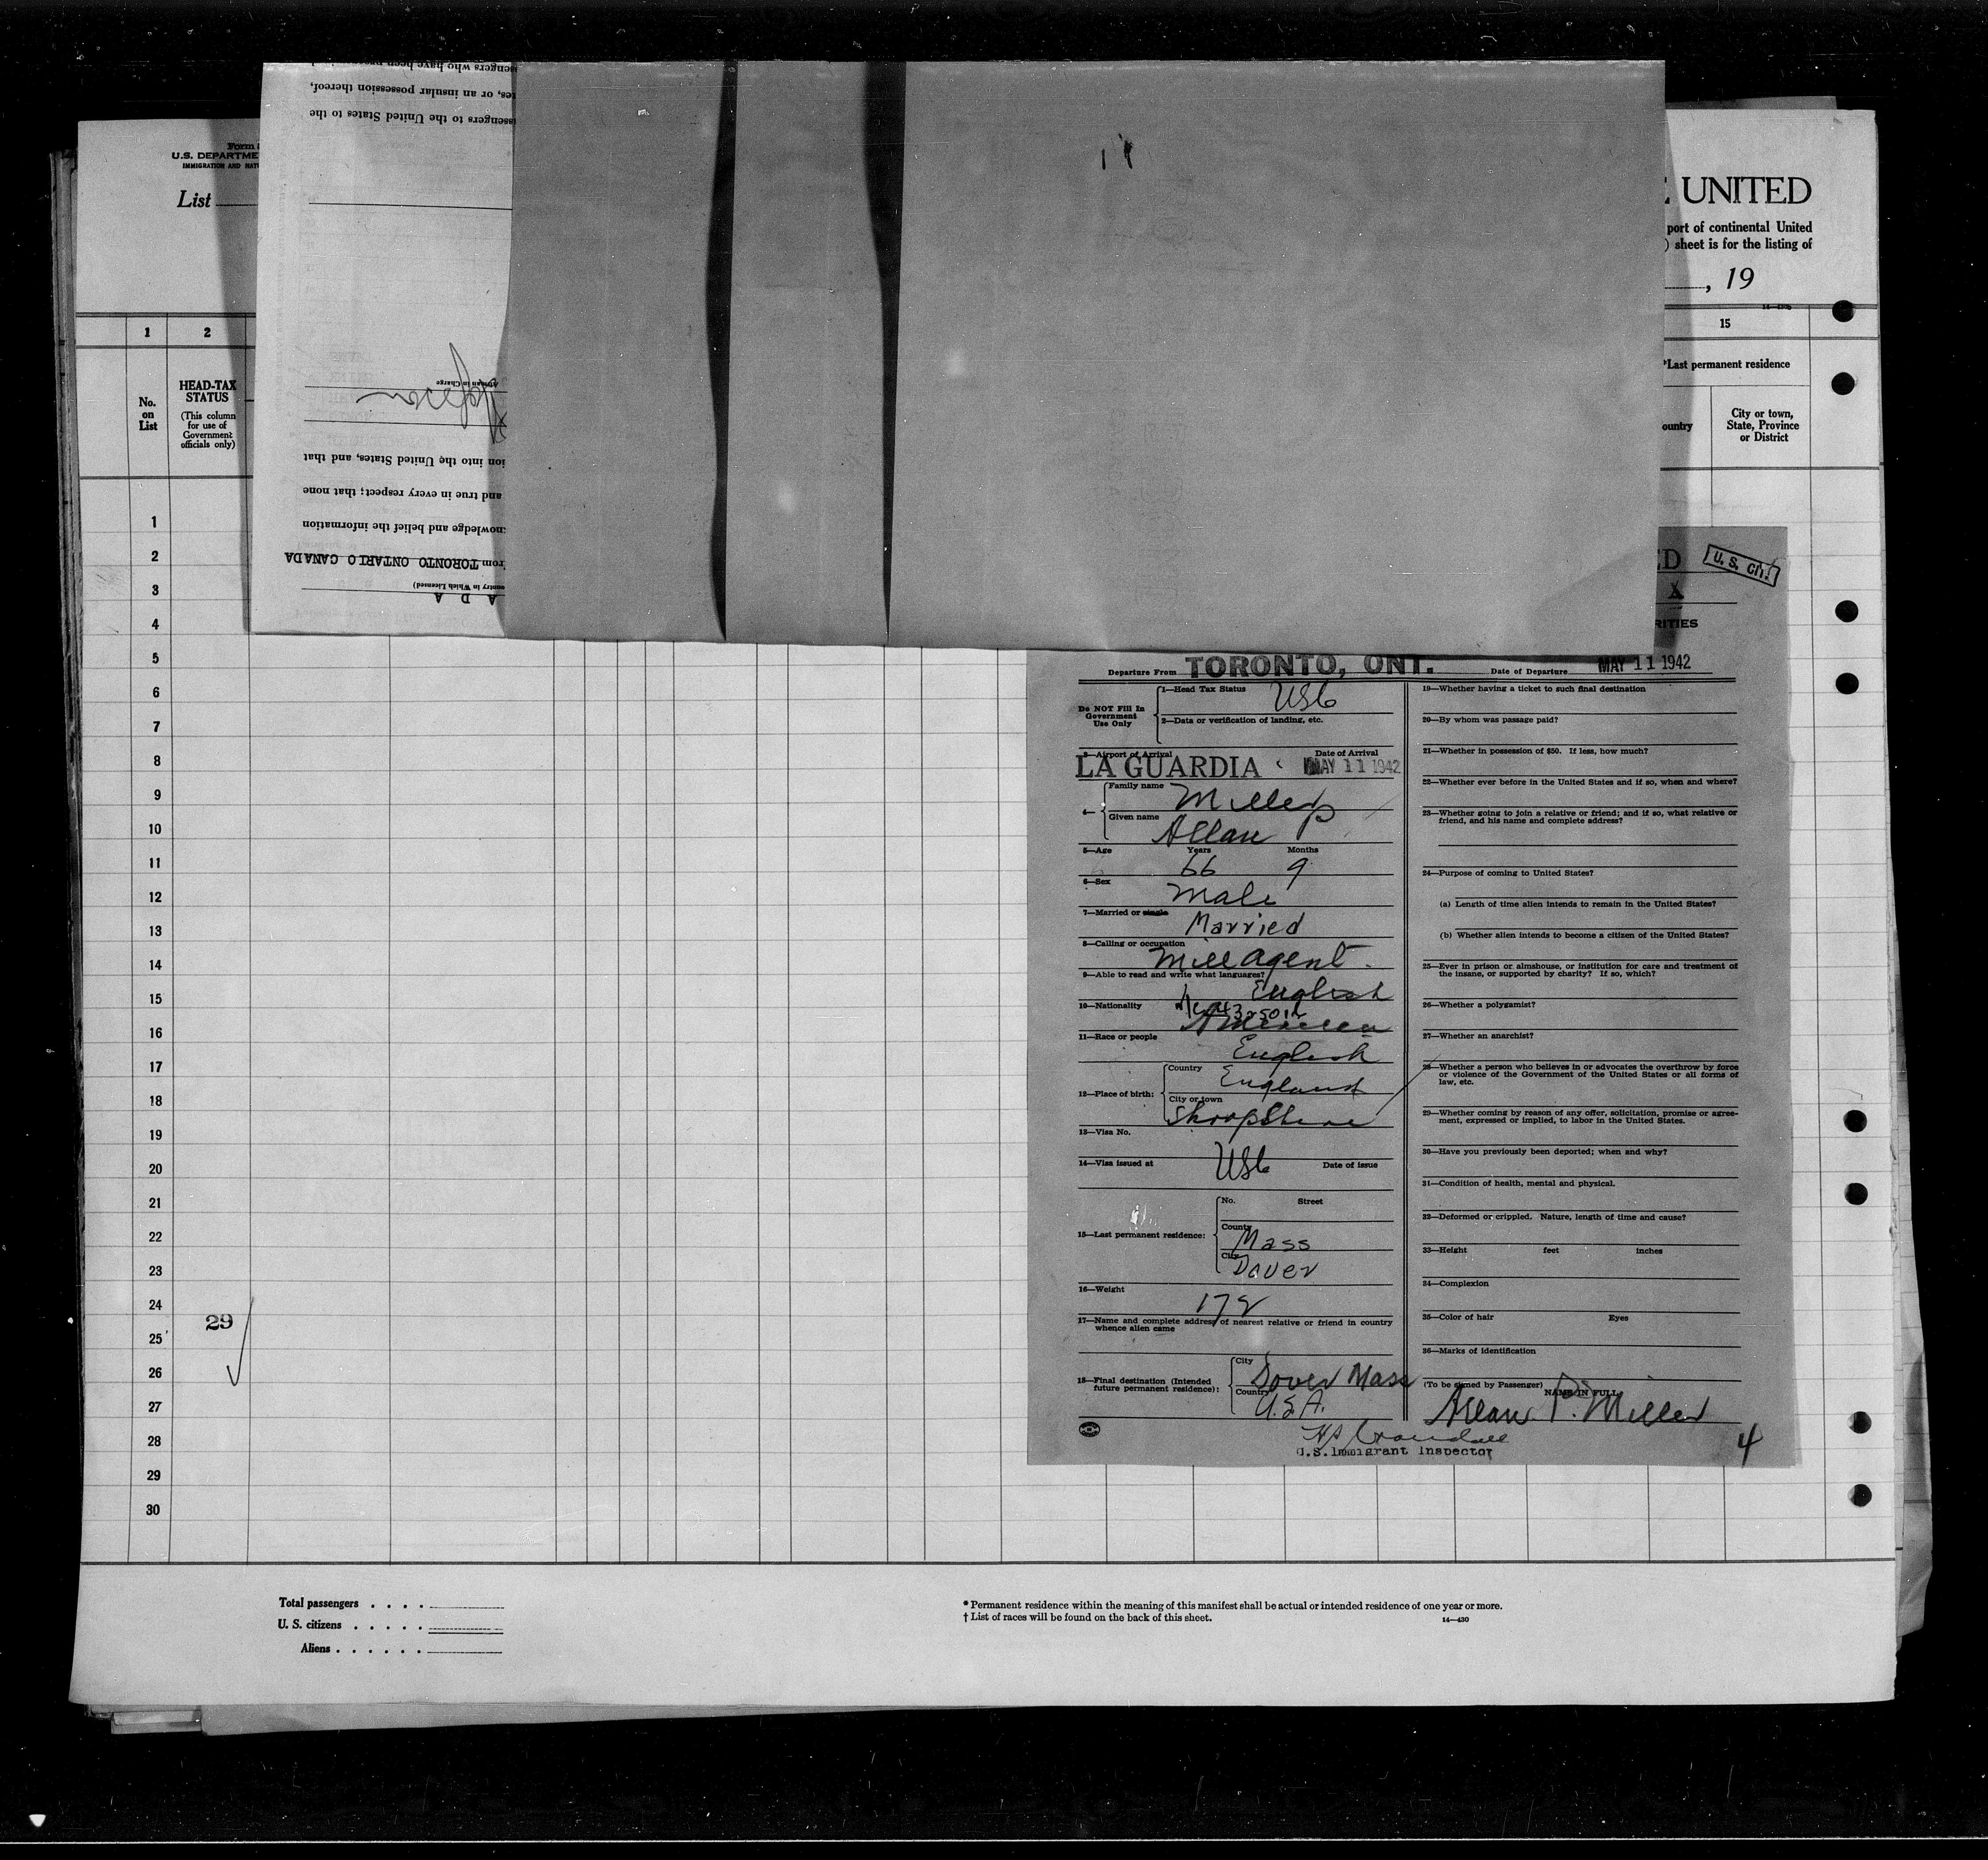 ssengers to the United States to the
tes, or an insular possession thereof,
Airman in Charge
ion into the United States, and that
and true in every respect; that none
nowledge and belief the information
rom TORONTO ONTARIO CANADA
ountry in Which Licensed)
A D A
U.S. DEPARTME
IMMIGRATION AND NAT
List
UNITED
port of continental United
) sheet is for the listing of
, 19
1 2 15
No.
on
List
HEAD-TAX
STATUS
(This column
for use of
Government
officials only)
*Last permanent residence
ountry
City or town,
State, Province
or District
1
2
3
4
5
6
7
8
9
10
11
12
13
14
15
16
17
18
19
20
21
22
23
24
25
26
27
28
29
30
29
ED
U. S. CIT.
RITIES
Departure From TORONTO, ONT. Date of Departure MAY 11 1942
Do NOT Fill In
Government
Use Only
1—Head Tax Status USC
2—Data or verification of landing, etc.
3—Airport of Arrival Date of Arrival
LA GUARDIA MAY 11 1942
4—
Family name Miller
Given name Allan P
5—Age Years Months
66 9
6—Sex
Male
7—Married or single
Married
8—Calling or occupation
Mill agent
9—Able to read and write what languages?
English
10—Nationality
American
11—Race or people
English
12—Place of birth:
Country
England
City or town
Shropshire
13—Visa No.
14—Visa issued at USC Date of issue
15—Last permanent residence:
No. Street
County
Mass
City
Dover
16—Weight
17—Name and complete address of nearest relative or friend in country
whence alien came
18—Final destination (Intended
future permanent residence):
City
Dover Mass
Country
U.S.A.
U.S. Immigrant Inspector
19—Whether having a ticket to such final destination
20—By whom was passage paid?
21—Whether in possession of $50. If less, how much?
22—Whether ever before in the United States and if so, when and where?
23—Whether going to join a relative or friend; and if so, what relative or
friend, and his name and complete address?
24—Purpose of coming to United States?
(a) Length of time alien intends to remain in the United States?
(b) Whether alien intends to become a citizen of the United States?
25—Ever in prison or almshouse, or institution for care and treatment of
the insane, or supported by charity? If so, which?
26—Whether a polygamist?
27—Whether an anarchist?
28—Whether a person who believes in or advocates the overthrow by force
or violence of the Government of the United States or all forms of
law, etc.
29—Whether coming by reason of any offer, solicitation, promise or agree-
ment, expressed or implied, to labor in the United States.
30—Have you previously been deported; when and why?
31—Condition of health, mental and physical.
32—Deformed or crippled. Nature, length of time and cause?
33—Height feet inches
34—Complexion
35—Color of hair Eyes
36—Marks of identification
(To be signed by Passenger) NAME IN FULL
Allan P. Miller
4
Total passengers . . . .
U. S. citizens . . . . .
Aliens . . . . . .
* Permanent residence within the meaning of this manifest shall be actual or intended residence of one year or more.
† List of races will be found on the back of this sheet. 14—430